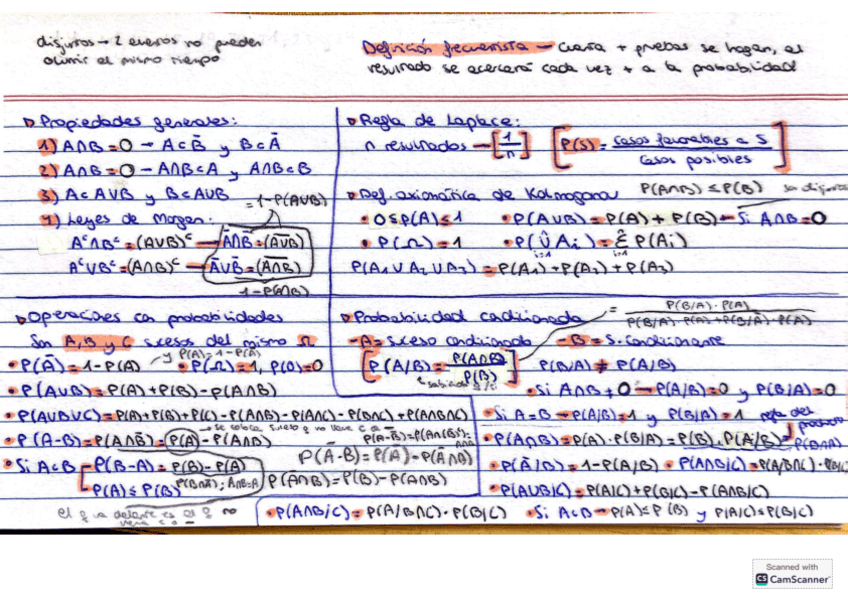 disjuntos → 2 eventos no pueden
ocurrir al mismo tiempo
Definición frecuentista → Cuanta + pruebas se hagan, el
resultado se acercará cada vez + a la probabilidad
Propiedades generales:
1) A∩B=O → A⊂B̄ y B⊂Ā
2) A∩B=O → A∩B⊂A y A∩B⊂B
3) A⊂AUB y B⊂AUB
4) Leyes de Morgan:
=1-P(AUB)
Aᶜ∩Bᶜ=(AUB)ᶜ → Ā∩B̄=(A̅U̅B̅)
AᶜUBᶜ=(A∩B)ᶜ → ĀUB̄=(A̅∩̅B̅)
1-P(A∩B)
Regla de Laplace:
n resultados → [1/n] [P(S)= casos favorables a S / casos posibles]
Def. axiomática de Kolmogorov P(A∩B) ≤P(B)
• 0≤P(A)≤1 • P(AUB)=P(A)+P(B) → Si A∩B=O
• P(Ω)=1 • P(U Ai)=Σ P(Ai)
i=1 i=1
P(A₁UA₂UA₃)=P(A₁)+P(A₂)+P(A₃)
Operaciones con probabilidades
Son A, B y C sucesos del mismo Ω
• P(Ā)=1-P(A) y P(A)=1-P(Ā) • P(Ω)=1, P(O)=0
• P(AUB)=P(A)+P(B)-P(A∩B)
• P(AUBUC)=P(A)+P(B)+P(C)-P(A∩B)-P(A∩C)-P(B∩C)+P(A∩B∩C)
• P(A-B)=P(A∩B̄)=P(A)-P(A∩B)
P(A-B̄)=P(A∩(Bᶜ)ᶜ)=
P(Ā-B)=P(Ā)-P(Ā∩B)
• Si A⊂B P(B-A)=P(B)-P(A)
P(A)≤P(B) P(B∩Ā); A∩B=A
P(Ā∩B)=P(B)-P(A∩B)
Probabilidad condicionada = P(B/A)·P(A) / P(B/A)·P(A)+P(B/Ā)·P(Ā)
-A=Suceso condicionado -B=S. condicionante
[P(A/B)=P(A∩B)/P(B)] P(B/A)≠P(A/B)
• Si A∩B=O → P(A/B)=0 y P(B/A)=0
• Si A=B → P(A/B)=1 y P(B/A)=1 regla del producto
• P(A∩B)=P(A)·P(B/A)=P(B)·P(A/B)=P(B∩A)
• P(Ā/B)=1-P(A/B) • P(A∩B/C)=P(A/B∩C)·P(B/C)
• P(AUB/C)=P(A/C)+P(B/C)-P(A∩B/C)
• P(A∩B/C)=P(A/B∩C)·P(B/C) • Si A⊂B → P(A)≤P(B) y P(A/C)≤P(B/C)
Scanned with
CS CamScanner